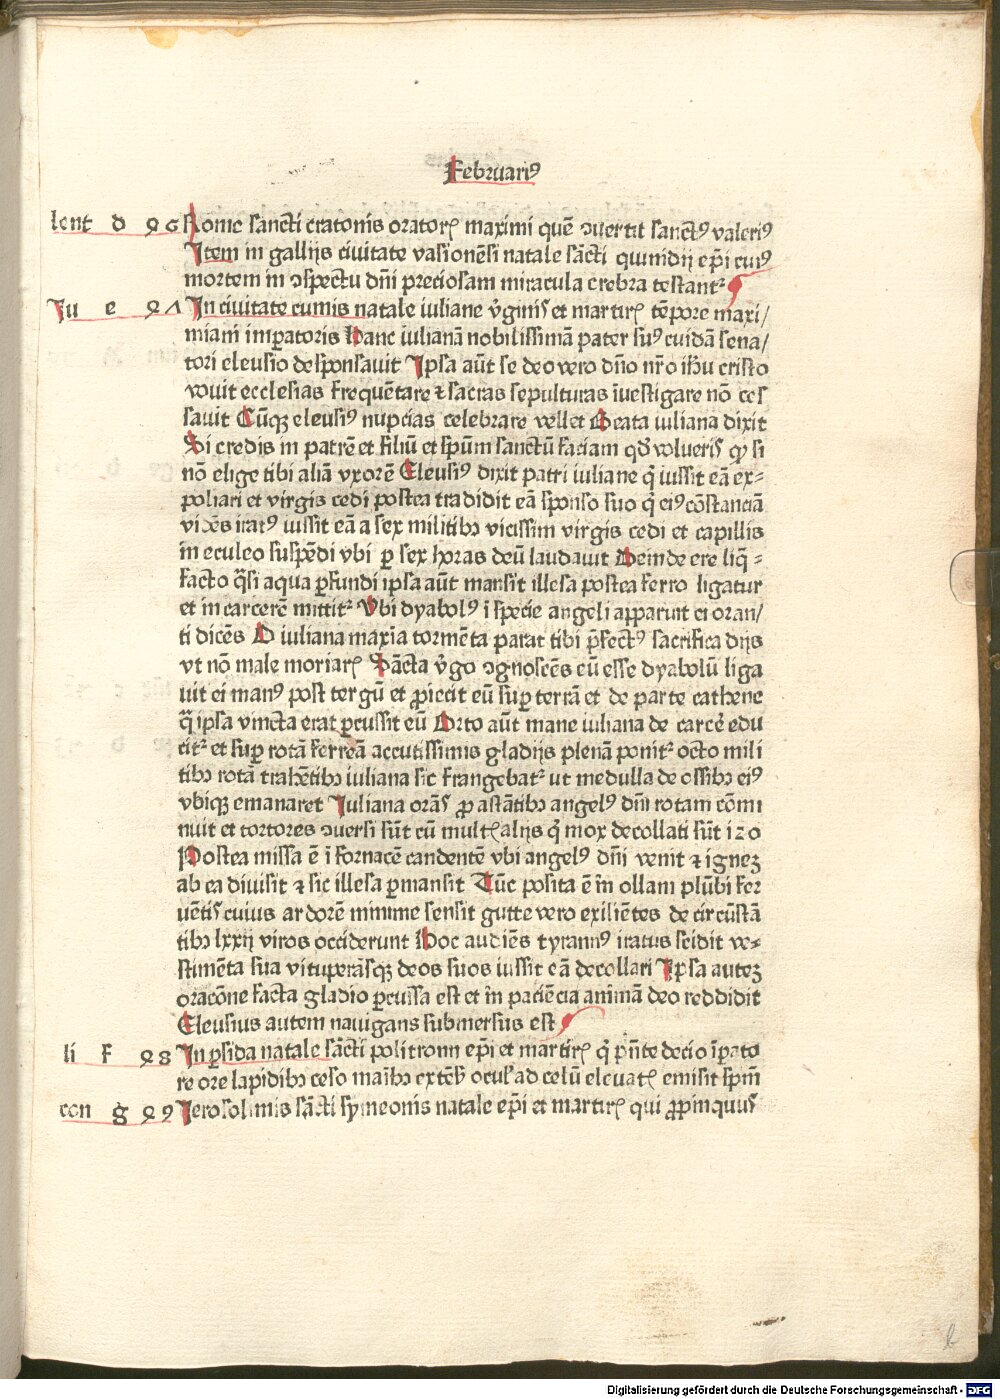 Februariꝰ
lent d ꝗ6 Rome sancti cratonis oratorꝭ maximi quē ꝯuertit sanctꝰ valeriꝰ
Item in gallijs ciuitate vasionēsi natale sācti quinidij ep̄i cuiꝰ
mortem in ꝯspectu dn̄i preciosam miracula crebra testant᷑
Ju e ꝗ7 In ciuitate cumis natale iuliane v̄ginis et martirꝭ tēpore maxi/
miani imꝑatoris Hanc iulianā nobilissimā pater suꝰ cuidā sena/
tori eleusio desponsauit Ipsa aūt se deo vero dn̄o nr̄o ih̄u cristo
vouit ecclesias frequētare ⁊ sacras sepulturas īuestigare nō ces
sauit Cūqꝫ eleusiꝰ nupcias celebrare vellet Beata iuliana dixit
Si credis in patrē et filiū et sp̄um sanctū faciam qd̄ volueris qꝫ si
nō elige tibi aliā vxorē Eleusiꝰ dixit patri iuliane q̄ iussit eā ex⸗
poliari et virgis cedi postea tradidit eā sponso suo q̄ eiꝰ cōstanciā
vidēs iratꝰ iussit eā a sex militibꝫ vicissim virgis cedi et capillis
in eculeo suspēdi vbi ꝑ sex horas deū laudauit Deinde ere liq̄⸗
facto q̄si aqua ꝑfundi ipsa aūt mansit illesa postea ferro ligatur
et in carcerē mittit᷑ Vbi dyabolꝰ ī specie angeli apparuit ei oran/
ti dicēs O iuliana maxīa tormēta parat tibi p̄fectꝰ sacrifica dijs
vt nō male moriarꝭ Sācta v̄go ꝯgnoscēs eū esse dyabolū liga
uit ei manꝰ post tergū et ꝓiecit eū suꝑ terrā et de parte cathene
q̄ ipsa vincta erat ꝑcussit eū Orto aūt mane iuliana de carcē edu
cit᷑ et suꝑ rotā ferreā accutissimis gladijs plenā ponit᷑ octo mili
tibꝫ rotā trahētibꝫ iuliana sic frangebat᷑ ut medulla de ossibꝫ eiꝰ
vbiqꝫ emanaret Juliana orās ꝓ astātibꝫ angelꝰ dn̄i rotam cōmi
nuit et tortores ꝯuersi sūt cū multꝭ alijs q̄ mox decollati sūt 120
Postea missa ē ī fornacē candentē vbi angelꝰ dn̄i venit ⁊ ignez
ab ea diuisit ⁊ sic illesa ꝑmansit Tūc posita ē in ollam plūbi fer
uētis cuius ardorē minime sensit gutte vero exiliētes de circūstā
tibꝫ lxxij viros occiderunt Hoc audiēs tyrannꝰ iratus scidit ve⸗
stimēta sua vituperāsqꝫ deos suos iussit eā decollari Ipsa autez
oracōne facta gladio ꝑcussa est et in paciēcia animā deo reddidit
Eleusius autem nauigans submersus est
li f ꝗ8 In ꝑsida natale sācti politronii ep̄i et martirꝭ q̄ p̄nte decio īꝑato
re ore lapidibꝫ ceso manibꝫ extēs oculꝰ ad celū eleuatꝭ emisit spm̄
con g ꝗ9 Ierosolimis sācti symeonis natale ep̄i et martirꝭ qui ꝓpinquus